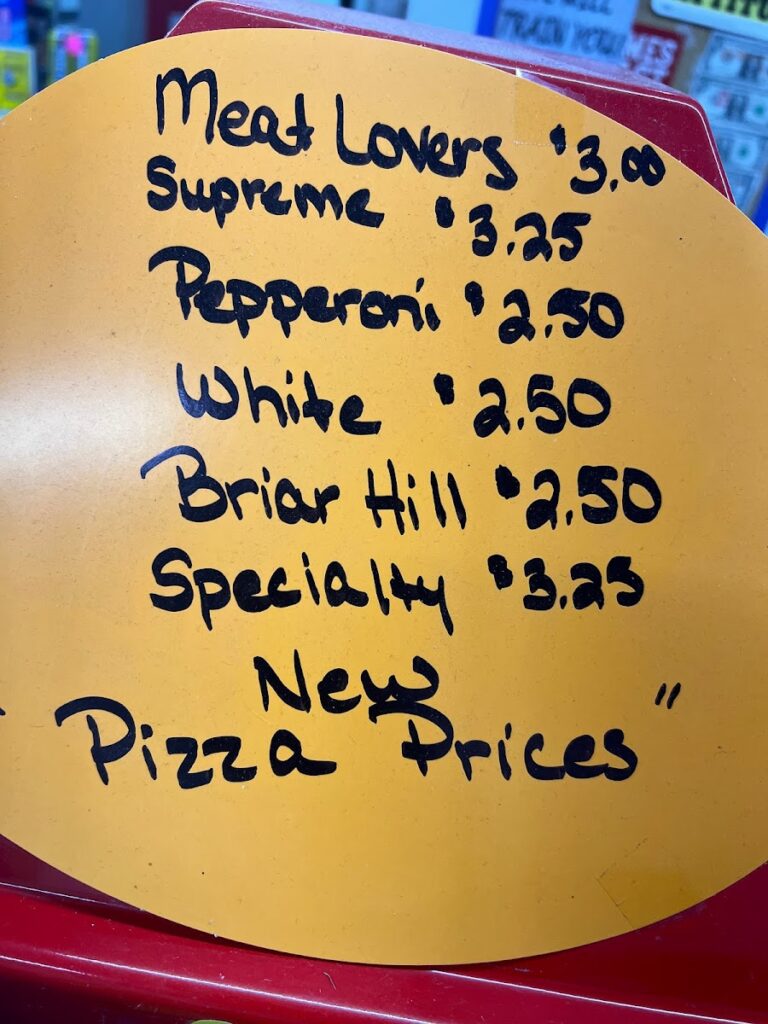 Meat Lovers $3.00
Supreme $3.25
Pepperoni $2.50
White $2.50
Briar Hill $2.50
Specialty $3.25
New
Pizza Prices "
TRAIN YOU